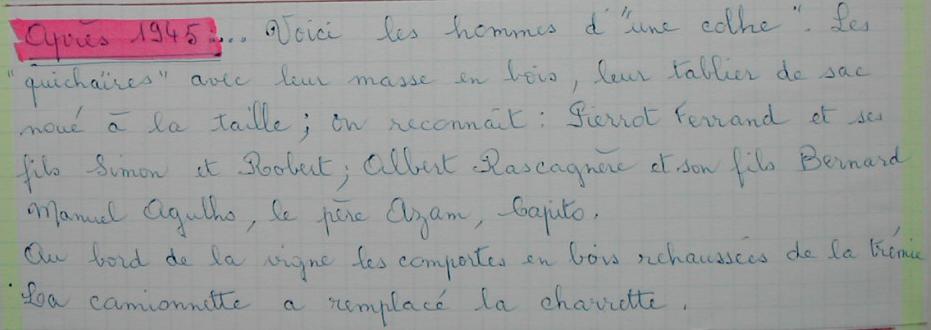 après 1945 :... Voici les hommes d'"une colhe". Les
"quichaïres" avec leur masse en bois, leur tablier de sac
noué à la taille ; on reconnaît : Pierrot Ferrand et ses
fils Simon et Robert ; Albert Rascagnère et son fils Bernard
Manuel Agulho, le père Azam, Caputo.
Au bord de la vigne les comportes en bois rehaussées de la trémie
La camionnette a remplacé la charrette.